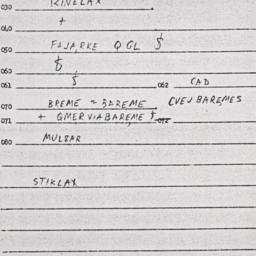 030 RINELAX
+
040
050 FAJARKE QGL $
$
060
061 $ 062 CAD
070 BREME = BAREME CVEJ BAREMES
071 + QMERVIABAREME $ 072
080 MULBAR
STIKLAX